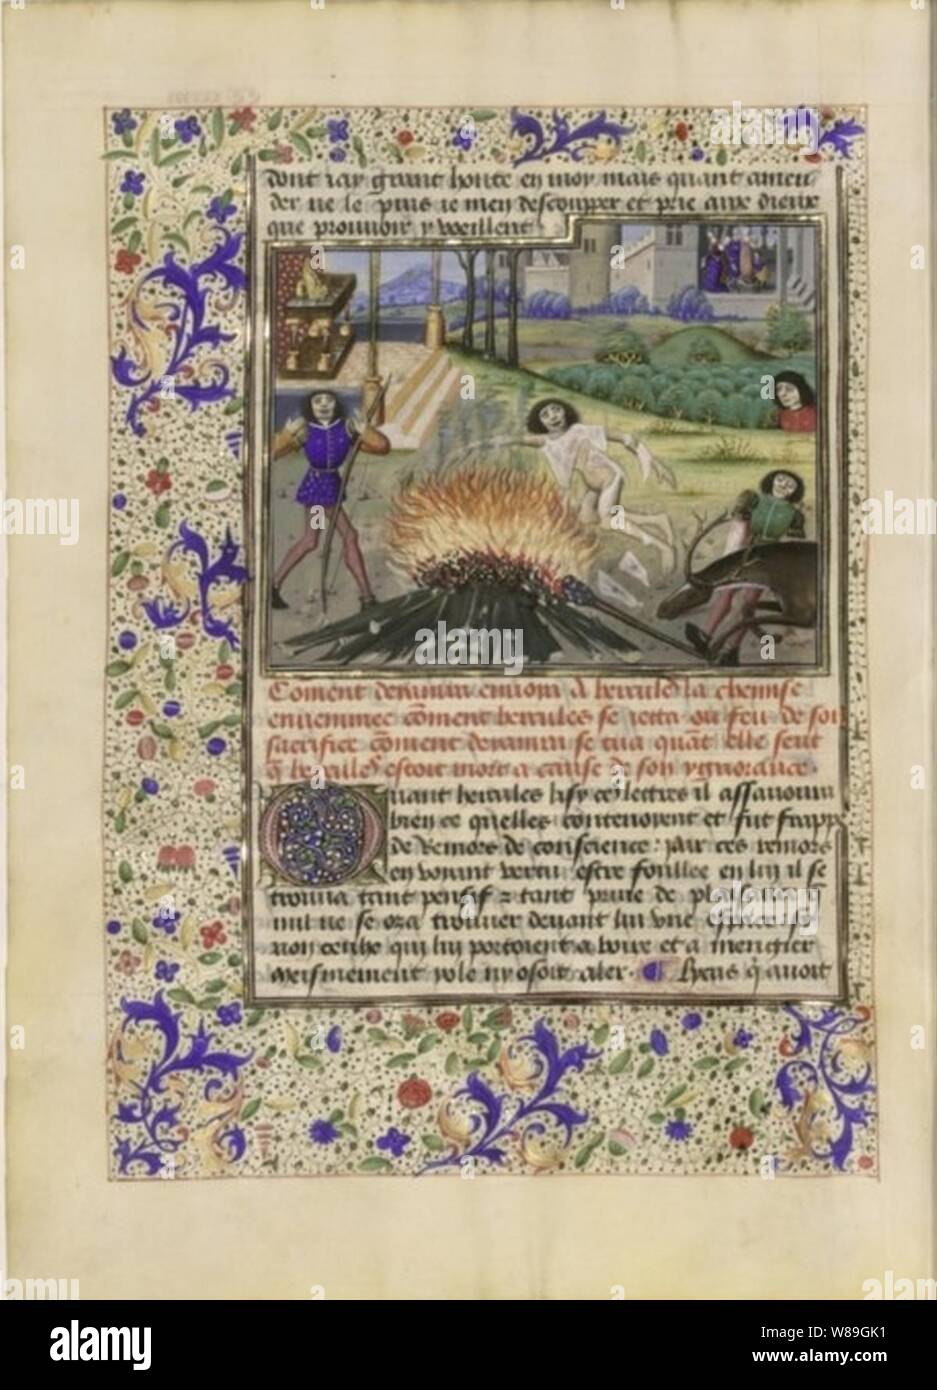 dont iay grant honte en moy mais quant amen
der ne le puis ie men descoupper et prie aux dieux
que prouuoir y vueillent
Coment deyanira enuoya a hercules la chemise
enuenimee coment hercules se ietta ou feu de son
sacrifice coment deyanira se tua quat elle sceut
q hercules estoit mort a cause de son ygnorance.
Quant hercules lisy ces lectres il
bien ce quelles contenoient et fut frappe
de Remors de conscience: par ces remors
en voyant vertu estre foullee en luy il se
trouua tant pensif z tant de plaisance q
nul ne se oza trouuer deuant luy vne espace
non ceulx qui luy portoient a boire et a mengier
meismement yole ny osoit aler. Lycas q auoit
alamy stock photo
alamy
W89GK1
www.alamy.com